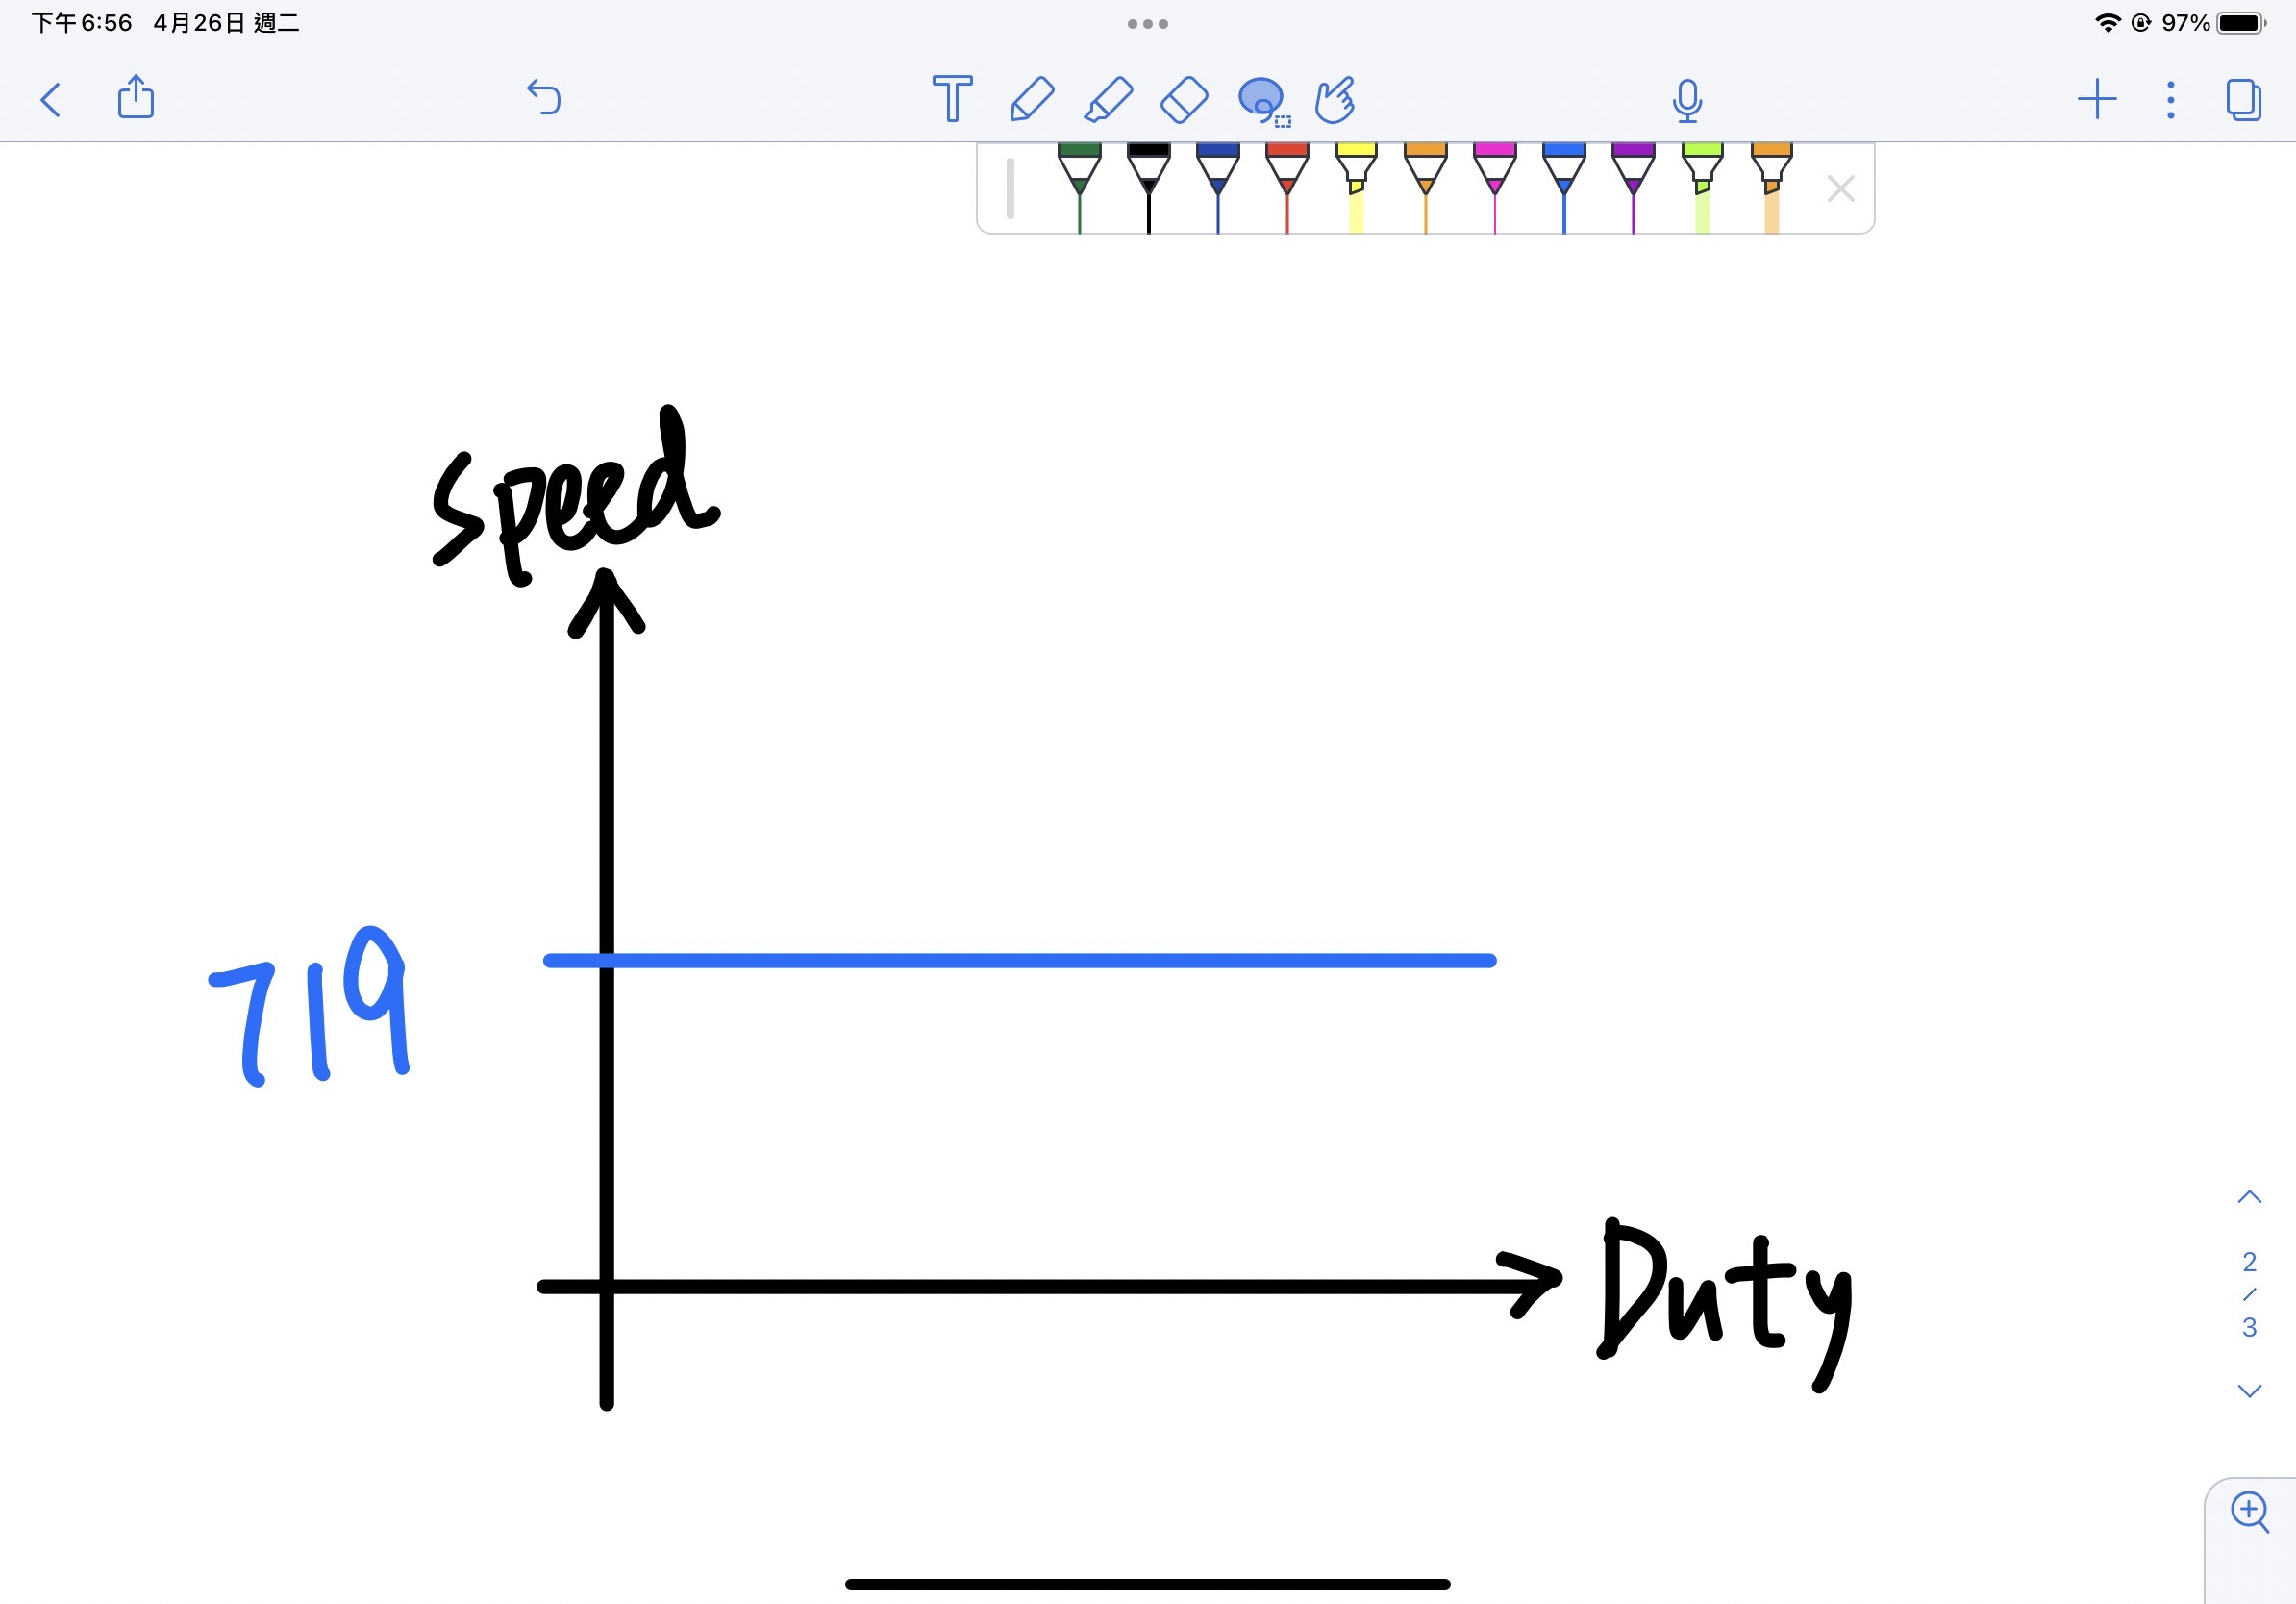 下午6:56 4月26日 週二
97%
T
speed
719
Duty
2
/
3